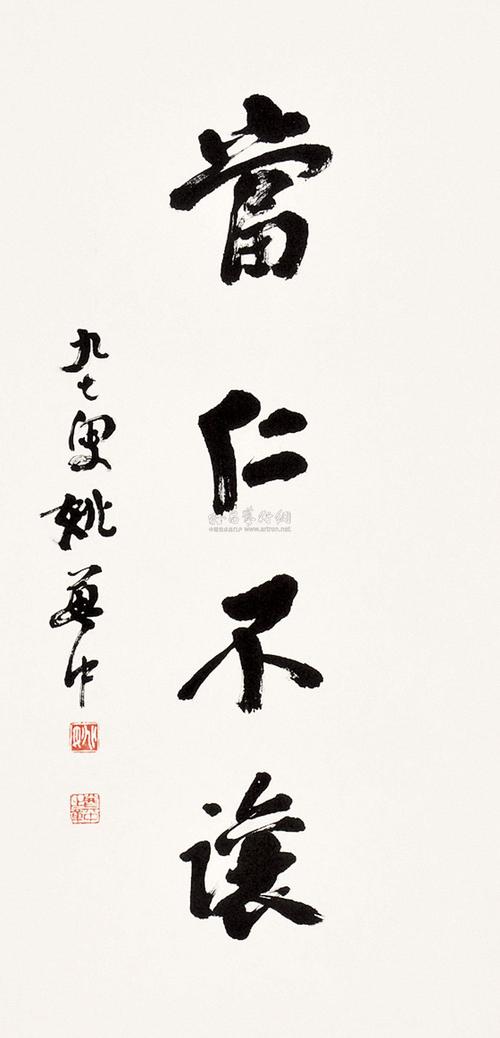 當仁不讓
九七叟姚奠中
雅昌藝術網
www.artron.net
姚